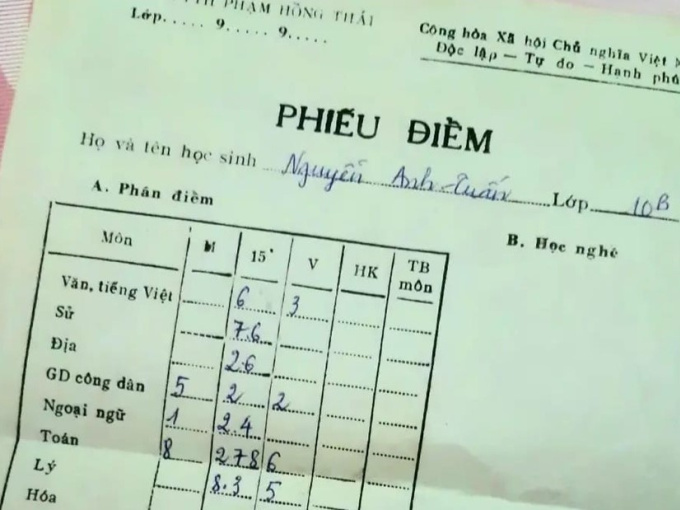 PHẠM HỒNG THÁI
Lớp..... 9..... 9.....
Cộng hòa Xã hội Chủ nghĩa Việt
Độc lập — Tự do — Hạnh phú
PHIẾU ĐIỂM
Họ và tên học sinh Nguyễn Anh Tuấn Lớp 10B
A. Phần điểm
B. Học nghề
Môn M 15' V HK TB môn
Văn, tiếng Việt 6 3
Sử 7.6
Địa 2.6
GD công dân 5 2 2
Ngoại ngữ 1 2.4
Toán 8 278 6
Lý 8.3 5
Hóa